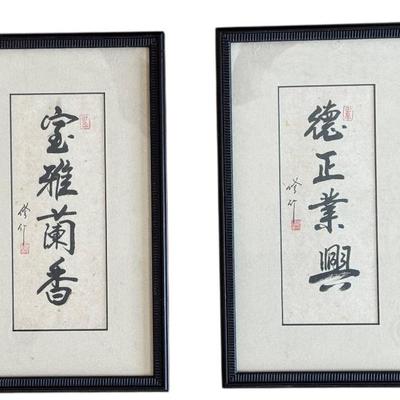 室雅蘭香
德正業興